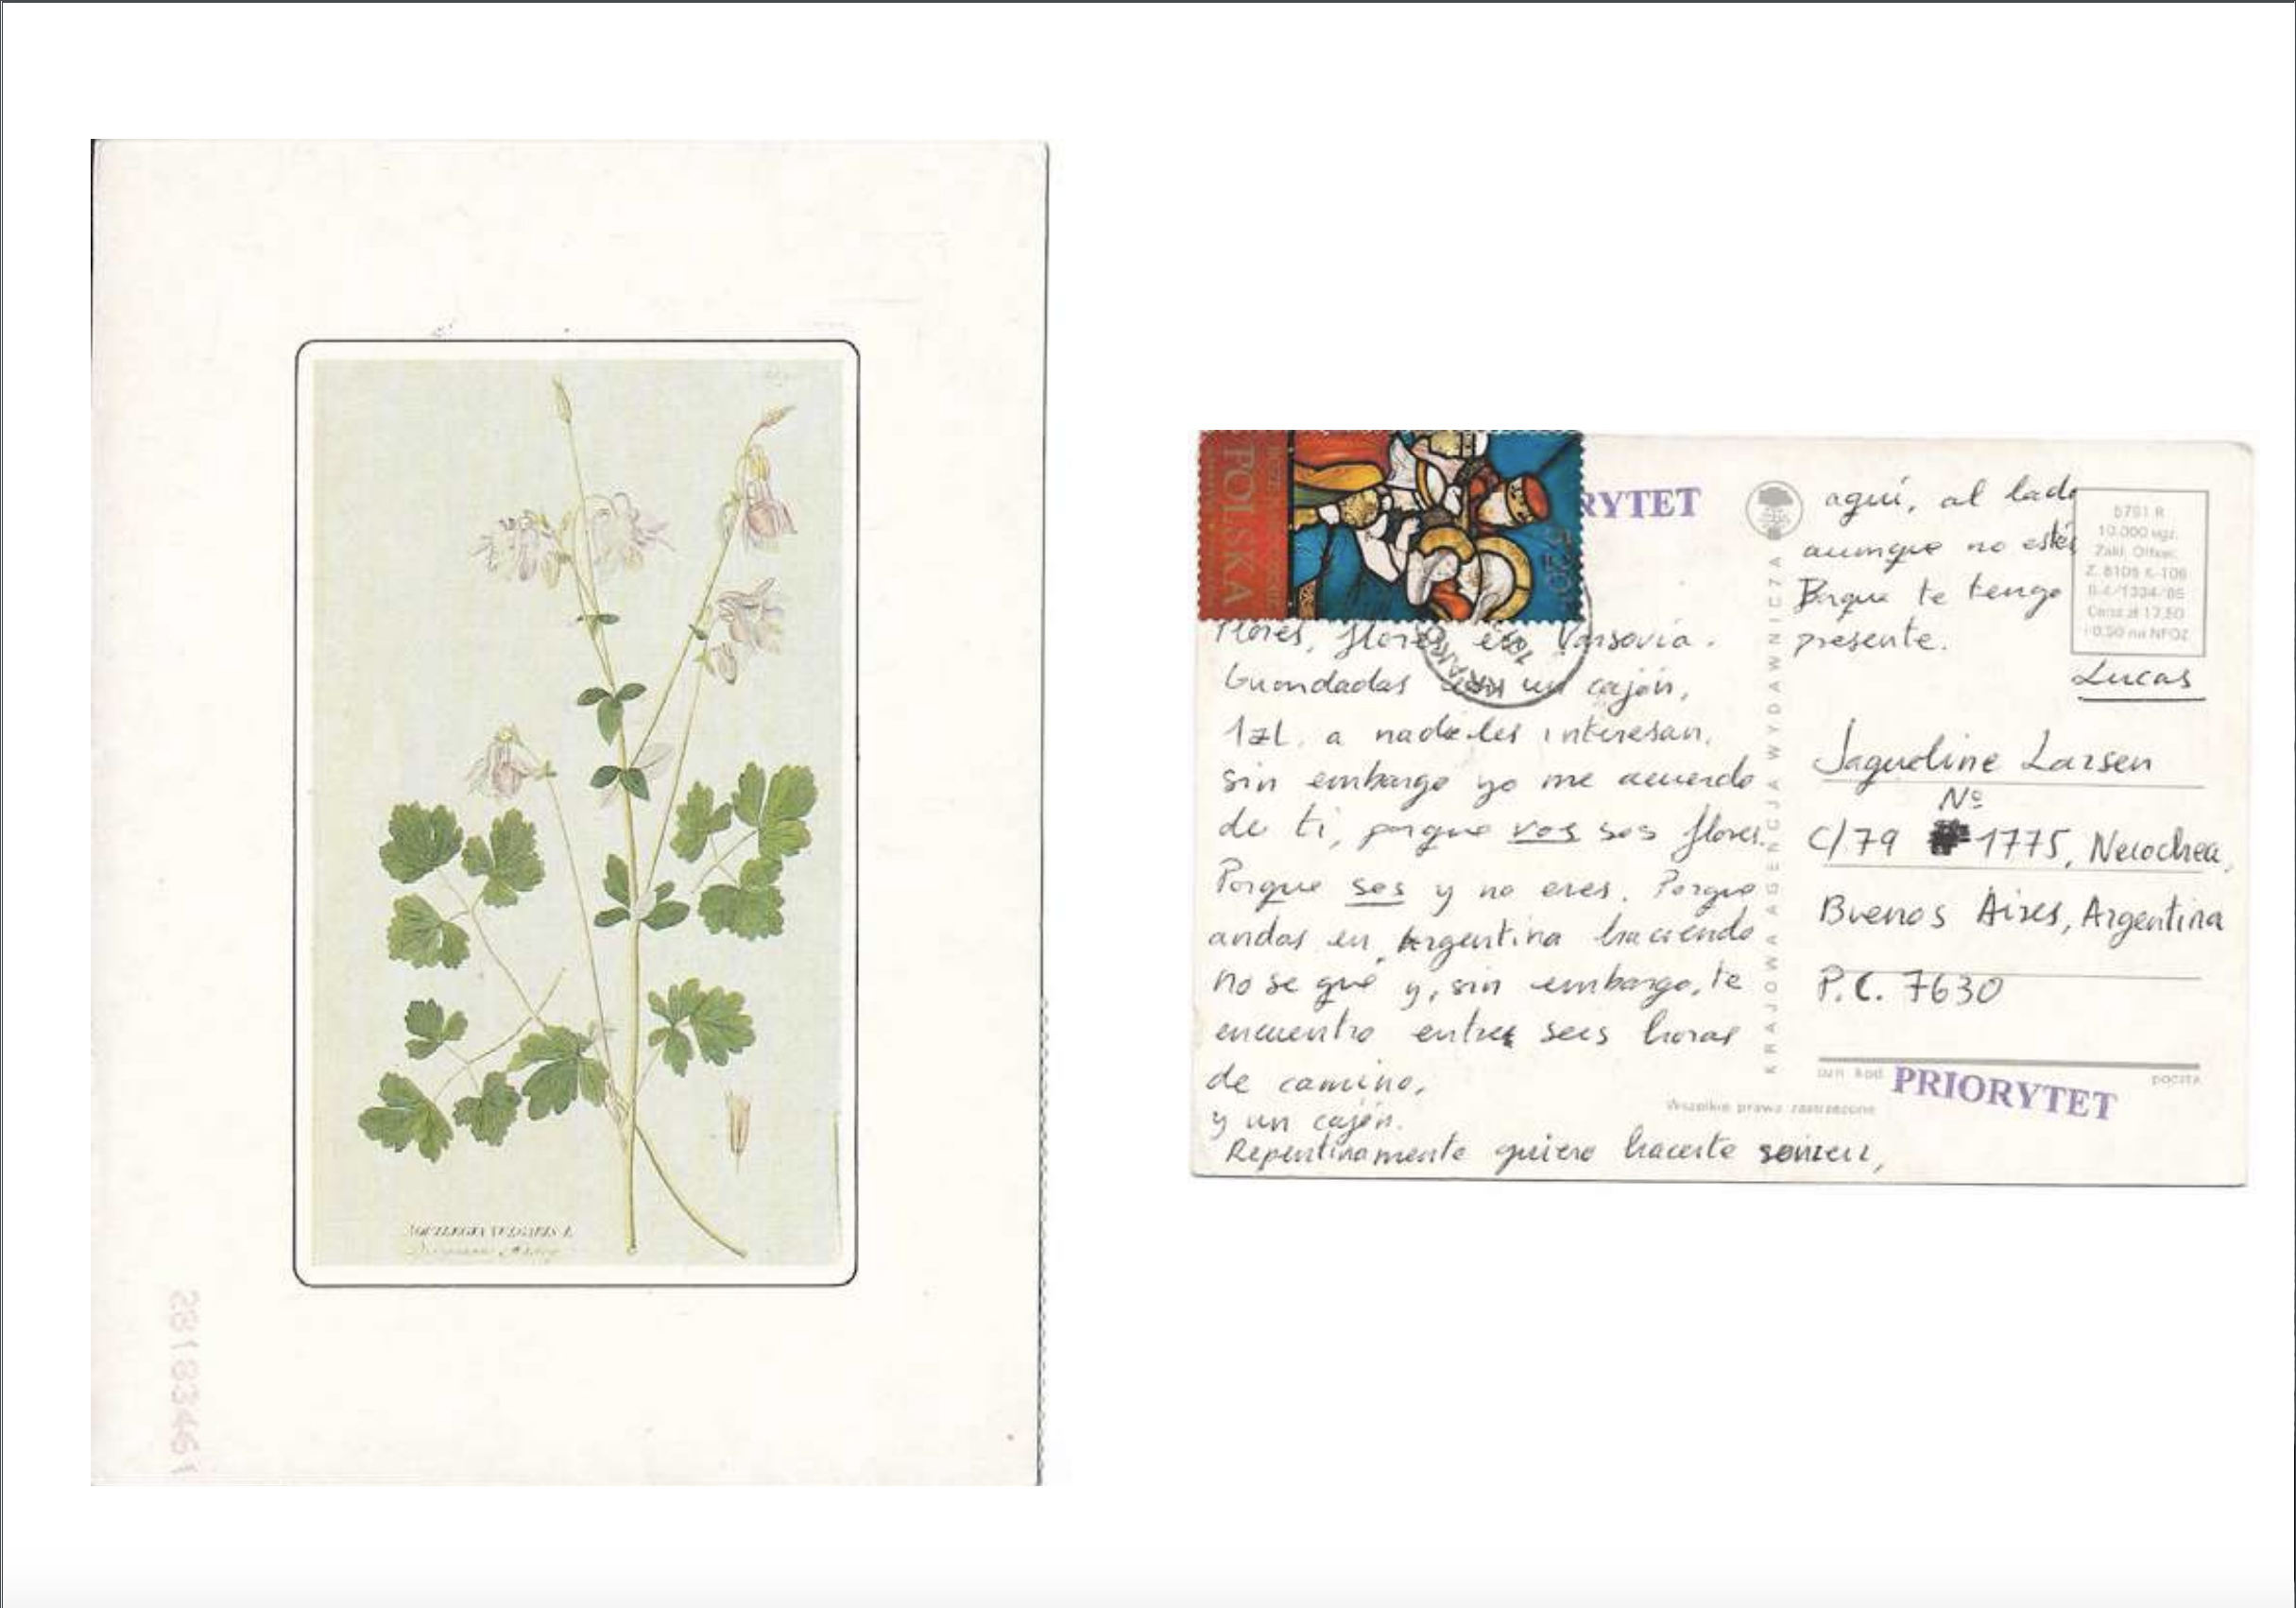 AQUILEGIA VULGARIS L
281833461
POLSKA
520
RYTET
KRAK
Flores, flores en Varsovia.
Guardadas en un cajón,
1zł. a nadie les interesan,
sin embargo yo me acuerdo
de ti, porque vos sos flores.
Porque sos y no eres. Porque
andas en Argentina haciendo
no se qué y, sin embargo, te
encuentro entre seis horas
de camino,
y un cajón.
Repentinamente quiero hacerte sonreir,
KRAJOWA AGENCJA WYDAWNICZA
Wszelkie prawa zastrzeżone
aquí, al lado
aunque no estés
Porque te tengo
presente.
Lucas
5781 R
10.000 egz.
Zakł. Offset.
Z. 8105 K-106
Cena zł 17,50
+0,50 na NFOZ
Jaqueline Larsen
Nº
C/79 1775, Necochea,
Buenos Aires, Argentina
P.C. 7630
kod
poczta
PRIORYTET